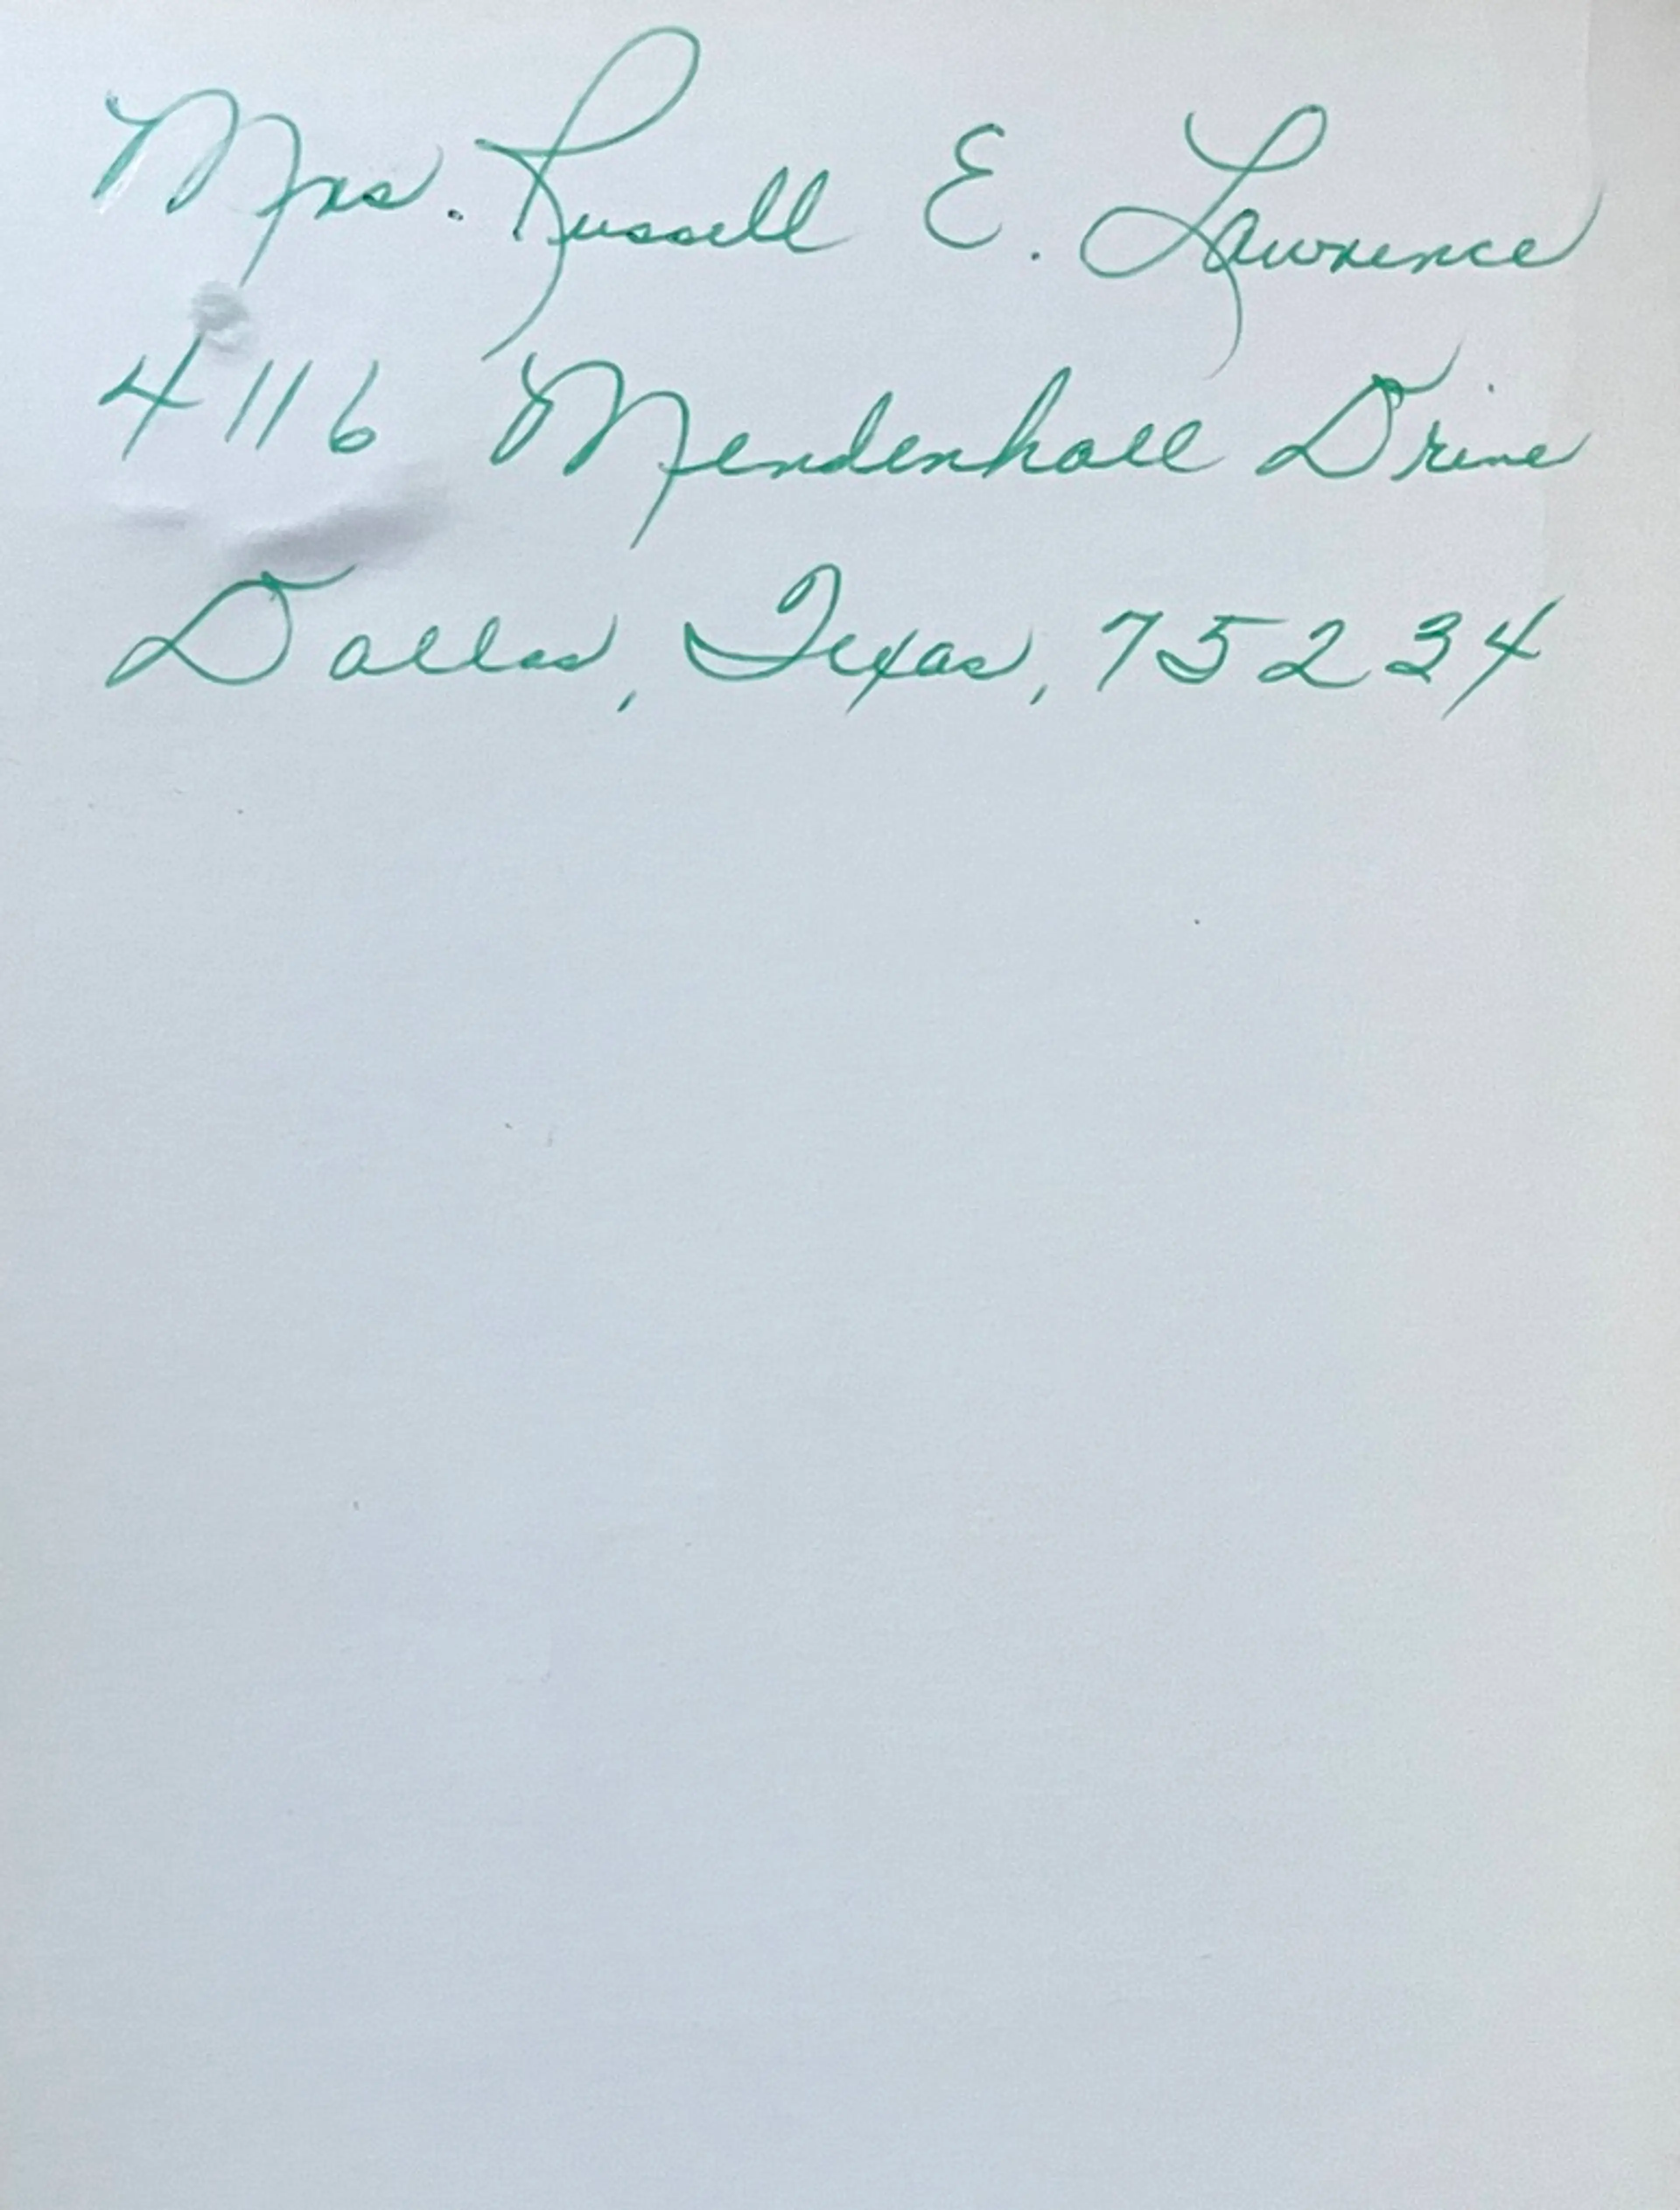 Mrs. Russell E. Lawrence
4116 Mendenhall Drive
Dallas, Texas, 75234